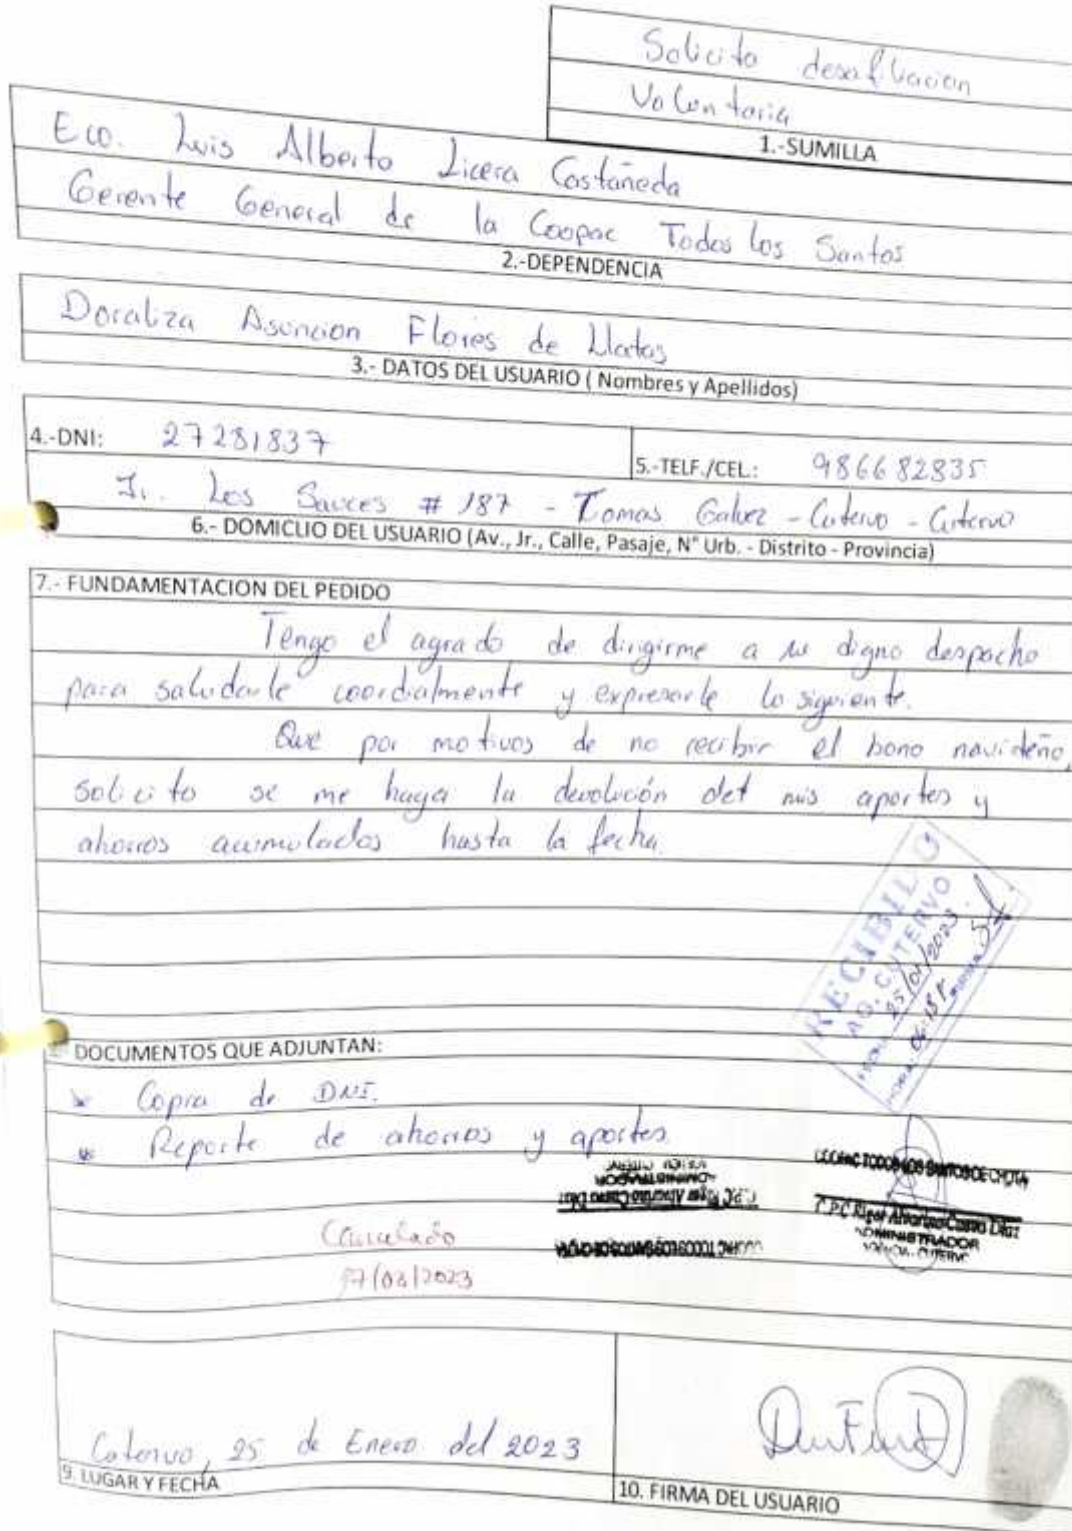 Solicito desafiliacion
Voluntaria
1.-SUMILLA
Eco. Luis Alberto Licera Castañeda
Gerente General de la Coopac Todos los Santos
2.-DEPENDENCIA
Doraliza Asuncion Flores de Llatas
3.- DATOS DEL USUARIO ( Nombres y Apellidos)
4.-DNI: 27281837
5.-TELF./CEL.: 986682835
Jr. Los Sauces # 187 - Tomas Galvez - Cutervo - Cutervo
6.- DOMICLIO DEL USUARIO (Av., Jr., Calle, Pasaje, N° Urb. - Distrito - Provincia)
7.- FUNDAMENTACION DEL PEDIDO
Tengo el agrado de dirigirme a su digno despacho
para saludarle coordialmente y expresarle lo siguiente.
Que por motivos de no recibir el bono navideño,
solicito se me haga la devolución det mis aportes y
ahorros acumulados hasta la fecha.
RECIBIDO
AG. CUTERVO
25/01/2023
HORA: 04:18 P
DOCUMENTOS QUE ADJUNTAN:
Copia de DNI.
Reporte de ahorros y aportes.
COOPAC TODOS LOS SANTOS DE CHOTA
ADMINISTRADOR
AGENCIA CUTERVO
COOPAC TODOS LOS SANTOS DE CHOTA
ADMINISTRADOR
AGENCIA - CUTERVO
Cancelado
/03/2023
Cutervo, 25 de Enero del 2023
9. LUGAR Y FECHA
10. FIRMA DEL USUARIO